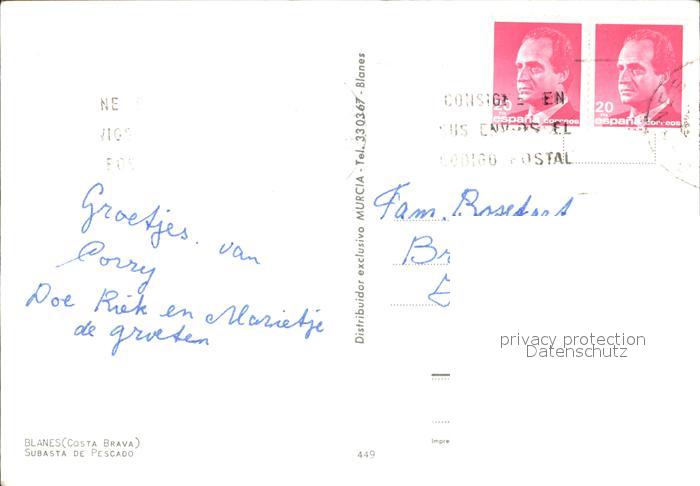 NE
VIOS
POS
CONSIGNE EN
SUS ENVIOS EL
CODIGO POSTAL
20
españa correos
20
españa correos
Groetjes van
Corry
Doe Riek en Marietje
de groeten
Fam.
Br
privacy protection
Datenschutz
Distribuidor exclusivo MURCIA - Tel. 330367 - Blanes
BLANES (COSTA BRAVA)
SUBASTA DE PESCADO
449
Impre